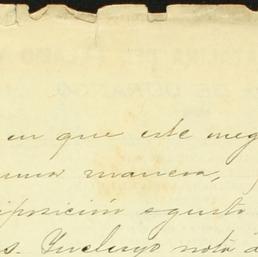 en que este neg
una manera,
sposición agusto
s. Incluyo nota a